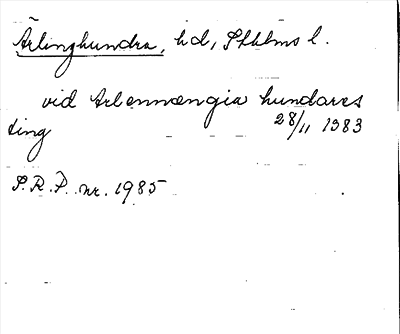 Ärlinghundra, hd, Sthlms l.
vid Arlennængia hundares
ting 28/11 1383
S.R.P. nr. 1985